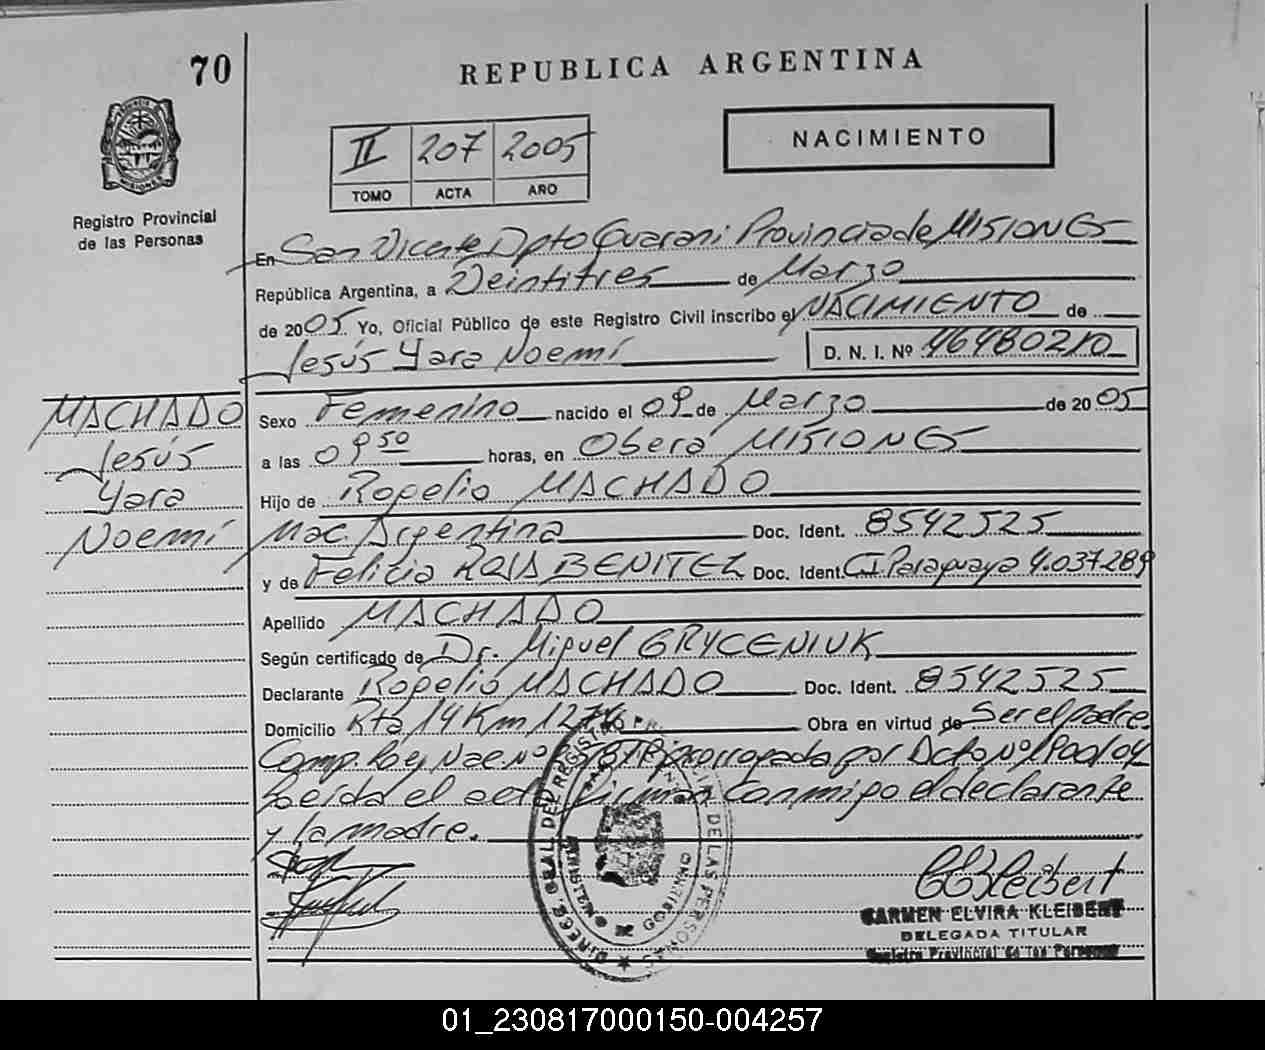 70
REPUBLICA ARGENTINA
II 207 2005
TOMO ACTA AÑO
NACIMIENTO
Registro Provincial
de las Personas
En San Vicente Dpto Guarani Provincia de MISIONES
República Argentina, a Veintitres de Marzo
de 2005 Yo, Oficial Público de este Registro Civil inscribo el NACIMIENTO de
Jesús Yara Noemí D. N. I. Nº 46480210
MACHADO
Jesús
Yara
Noemí
Sexo Femenino nacido el 09 de Marzo de 2005
a las 09 50 horas, en Oberá MISIONES
Hijo de Rogelio MACHADO
Nac. Argentina Doc. Ident. 8542525
y de Felicia ROJA BENITEZ Doc. Ident. CI Paraguaya 4.037.289
Apellido MACHADO
Según certificado de Dr. Miguel GRYCENIUK
Declarante Rogelio MACHADO Doc. Ident. 8542525
Domicilio Rta 14 Km 1274 Obra en virtud de Ser el padre
Comp. Nac nº prorrogada por Dcto Nº
Leída el acta firman conmigo el declarante
y la madre.
DIREC. GRAL. DEL REGISTRO PROVINCIAL DE LAS PERSONAS
MINISTERIO DE GOBIERNO
CARMEN ELVIRA KLEIBERT
DELEGADA TITULAR
Registro Provincial de las Personas
01_230817000150-004257